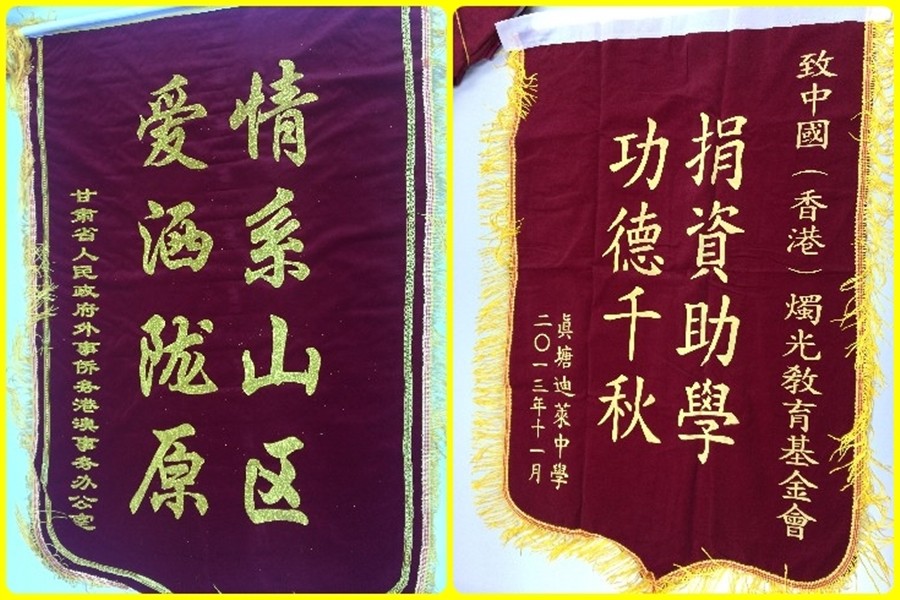 情系山区
爱洒陇原
甘肃省人民政府外事侨务港澳事务办公室
致中國（香港）燭光教育基金會
捐資助學
功德千秋
真塘迪萊中學
二〇一三年十一月